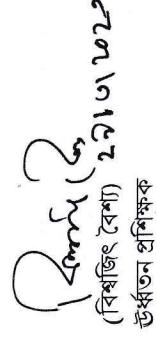 ২৯/০৩/২০২
(বিশ্বজিৎ বৈশ্য)
ঊর্ধ্বতন প্রশিক্ষক